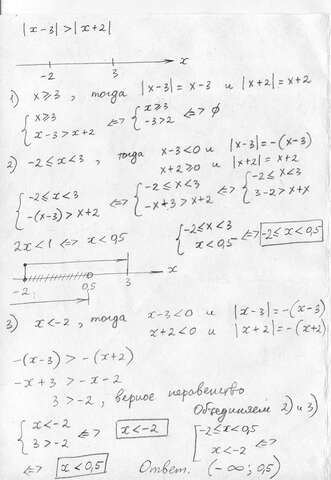 |x-3|>|x+2|
-2 3 x
1) x≥3, тогда |x-3|=x-3 и |x+2|=x+2
{x≥3 x-3>x+2 <=> {x≥3 -3>2 <=> ∅
2) -2≤x<3, тогда x-3<0 и |x-3|=-(x-3)
x+2≥0 и |x+2|=x+2
{-2≤x<3 -(x-3)>x+2 <=> {-2≤x<3 -x+3>x+2 <=> {-2≤x<3 3-2>x+x
2x<1 <=> x<0,5 {-2≤x<3 x<0,5 <=> -2≤x<0,5
-2 0,5 3 x
3) x<-2, тогда x-3<0 и |x-3|=-(x-3)
x+2<0 и |x+2|=-(x+2)
-(x-3)>-(x+2)
-x+3>-x-2
3>-2, верное неравенство
Объединяем 2) и 3)
{x<-2 3>-2 <=> x<-2 [-2≤x<0,5 x<-2 <=>
<=> x<0,5 Ответ. (-∞; 0,5)